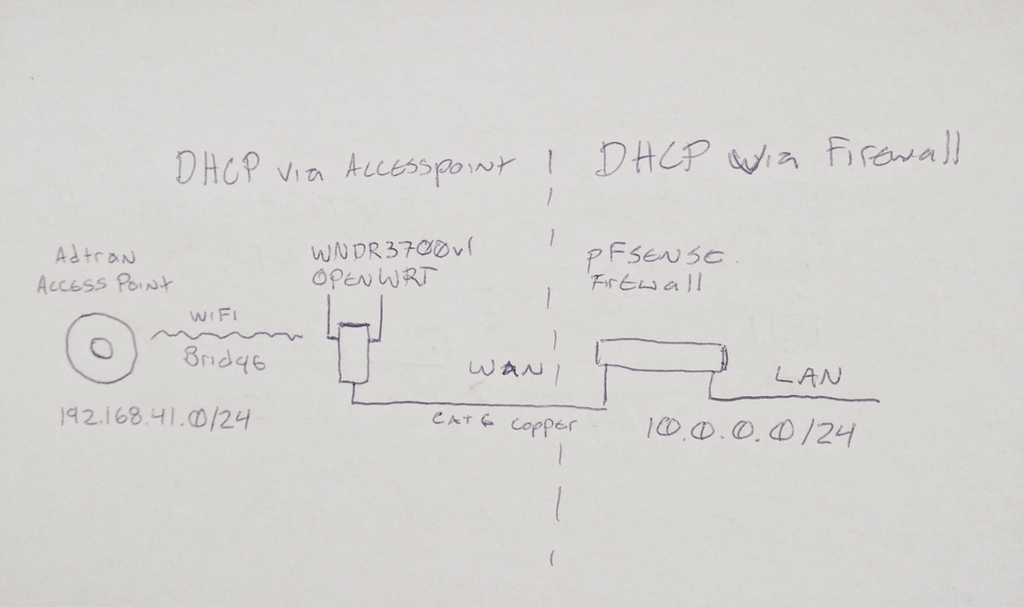 DHCP via Accesspoint
DHCP via Firewall
Adtran
Access Point
WNDR3700v1
OPENWRT
pFSENSE
Firewall
WiFi
Bridge
WAN
LAN
192.168.41.0/24
CAT6 Copper
10.0.0.0/24